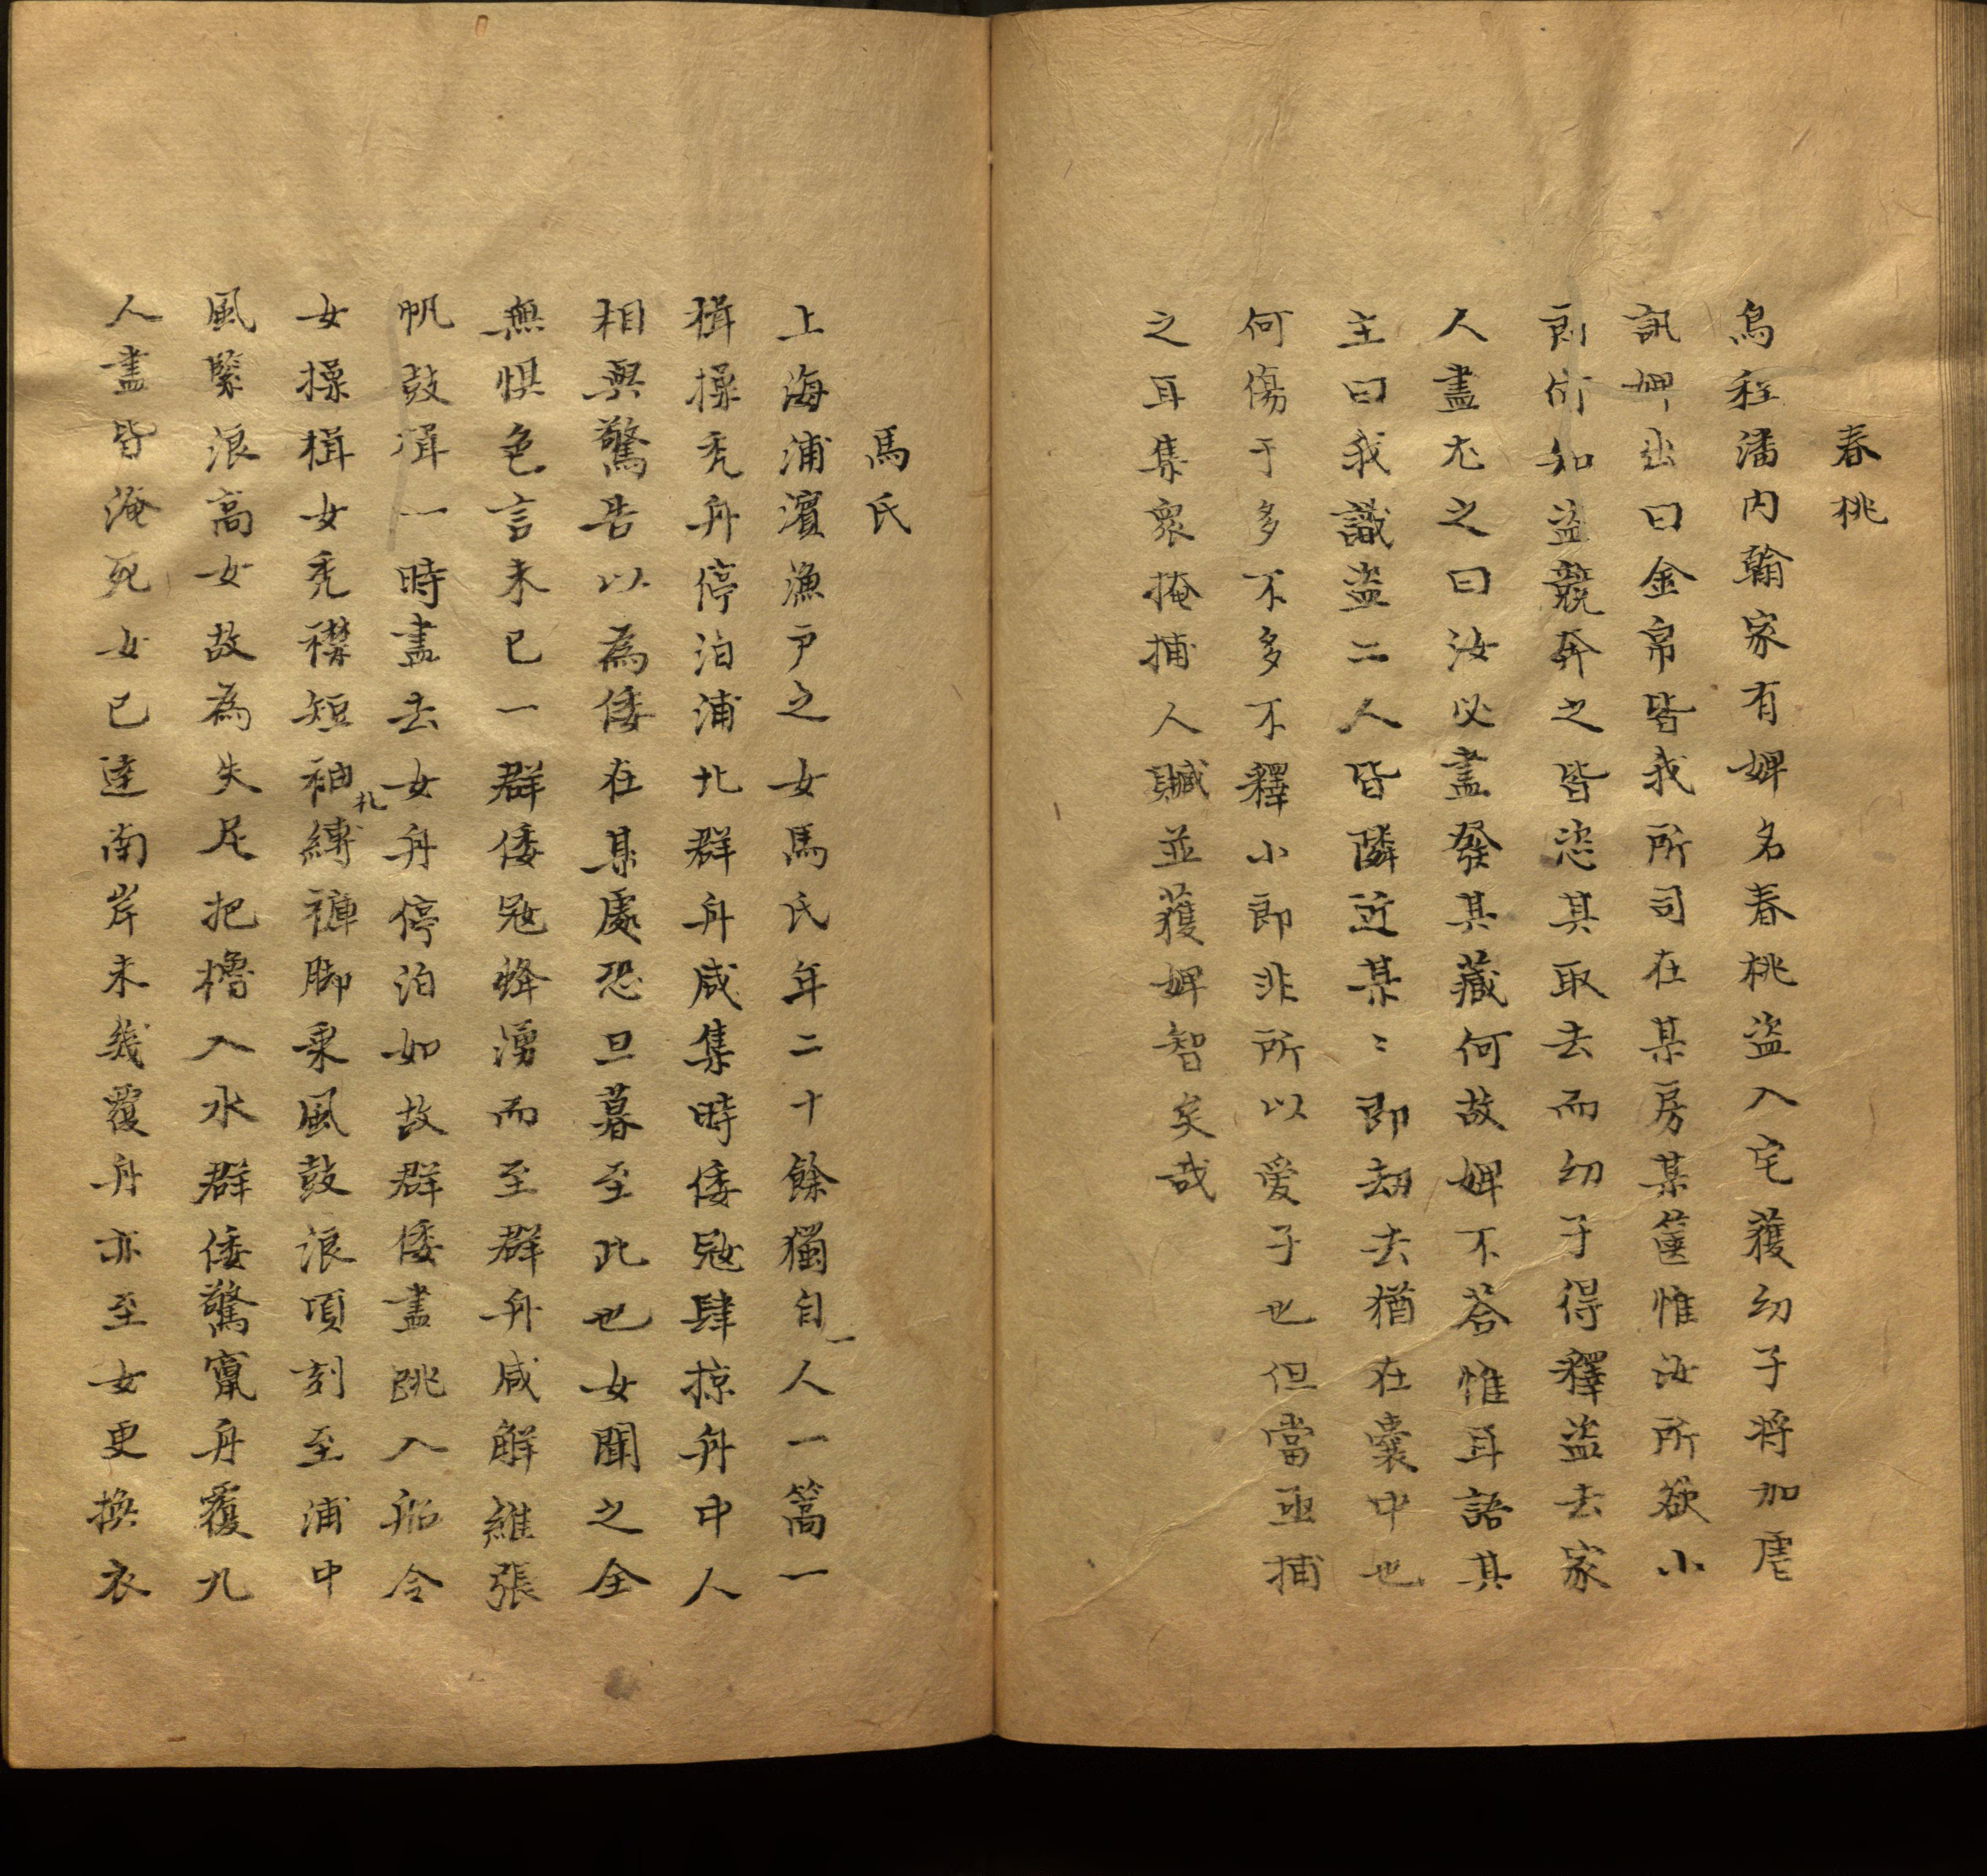 春桃
烏程潘内翰家有婢名春桃盜入宅獲幼子將加虐
訊婢出曰金帛皆我所司在某房某篋惟汝所欲小
郎何知盜競奔之皆恣其取去而幼子得釋盜去家
人盡尤之曰汝必盡發其藏何故婢不荅惟耳語其
主曰我識盜二人皆隣近某〻即劫去猶在囊中也
何傷于多不多不釋小郎非所以愛子也但當亟捕
之耳集衆掩捕人贓並獲婢智矣哉
馬氏
上海浦濱漁戸之女馬氏年二十餘獨自一人一篙一
楫操秃舟停泊浦北群舟咸集時倭冦肆掠舟中人
相與驚告以為倭在某處恐旦暮至此也女聞之全
無惧色言未已一群倭冦蜂湧而至群舟咸解維張
帆鼓楫一時盡去女舟停泊如故群倭盡跳入船令
女操楫女秃襟短袖扎縛褲脚乘風鼓浪頃刻至浦中
風緊浪高女故為失足把櫓入水群倭驚窜舟覆九
人盡皆淹死女已達南岸未幾覆舟亦至女更換衣